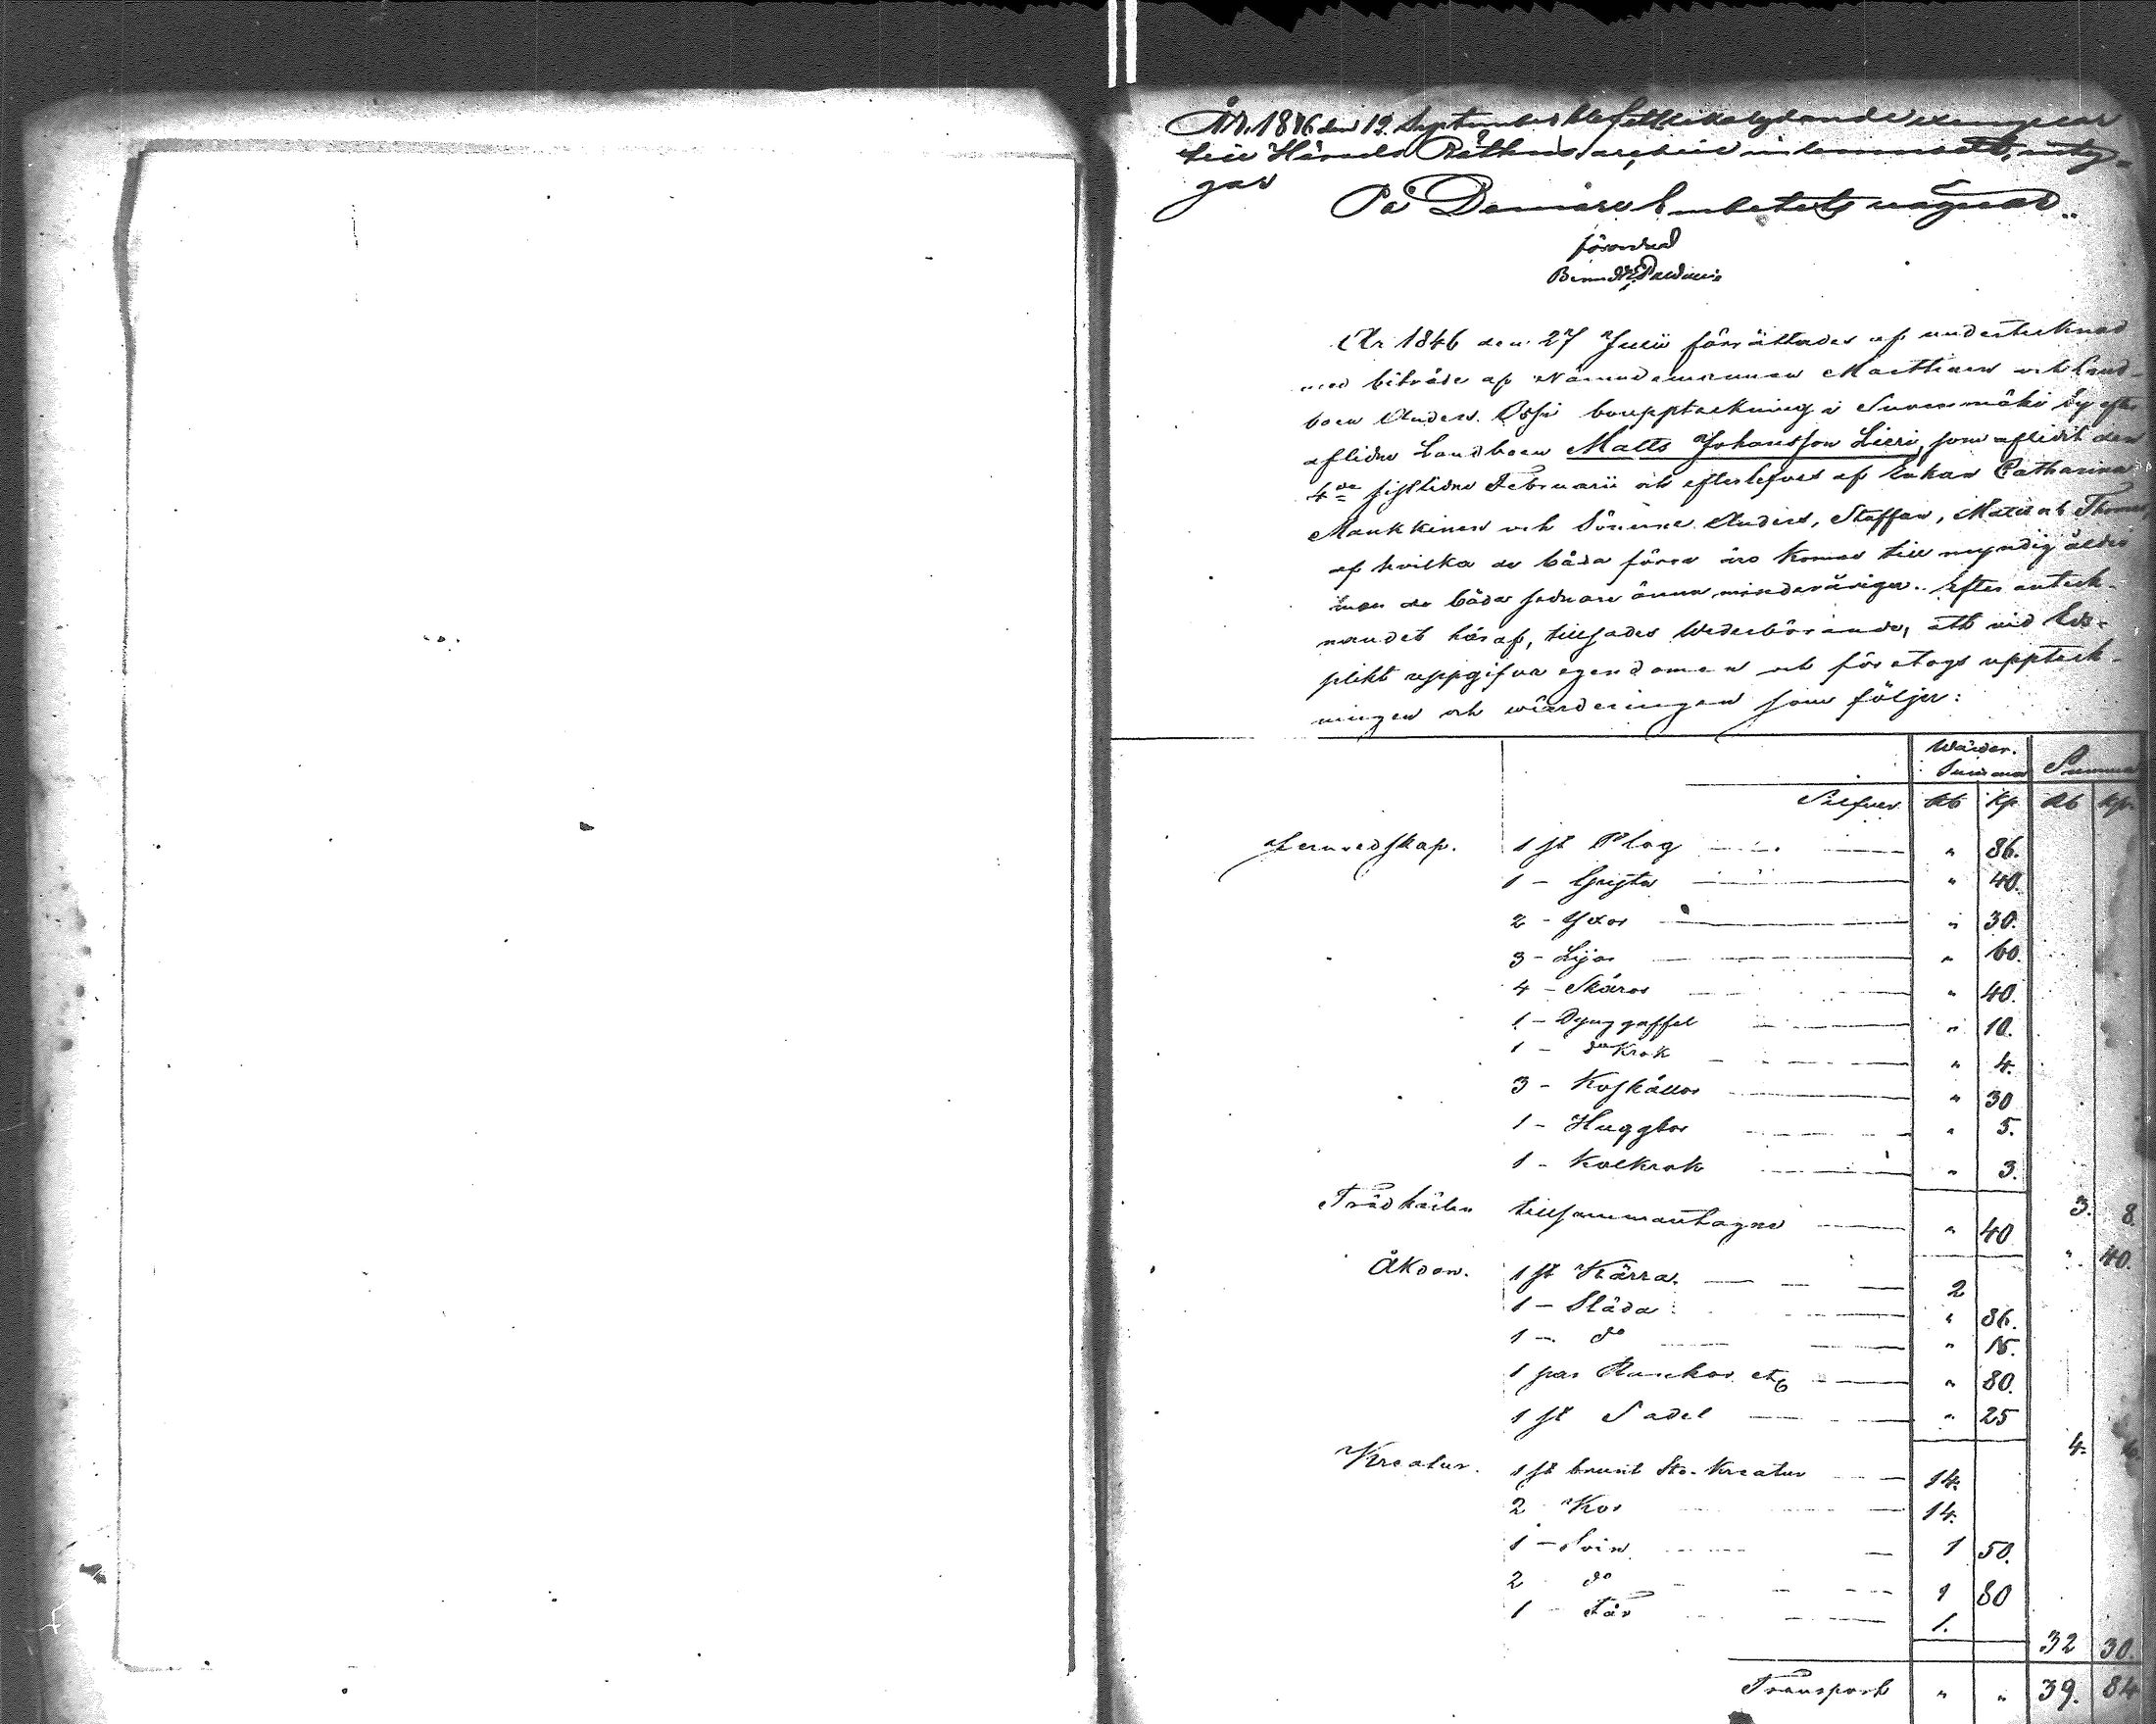 År 1846 den 12 September blef ett lika lydande exemplar
till Härads Rättens archiv inlemnadt, intygar
På Domare Embetets vägnar
År 1846 den 27 Julii förrättades af undertecknad
med biträde af Nämndemannen Marttinen och Land-
boen Anders Ossi bouppteckning i Suvenmäki by efter
aflidne Landboen Matts Johansson Lieri, som aflidit den
4de sistlidne Februarii och efterlefves af Enkan Catharina
Maukkinen och Sönerne Anders, Staffan, Matts och Thomas
af hvilka de båda förra äro komne till myndig ålder
men de båda sednare ännu minderåriga. Efter anteck-
nandet häraf, tillsades Wederbörande, att vid Eds-
plikt uppgifva egendomen och företogs uppteck-
ningen och wärderingen som följer:
Wärder. Summa Summa
Silfver Rb Kp Rb Kp.
Jernredskap. 1 st Plog " 86.
1 - Gryta " 40.
2 - Yxor " 30.
3 - Lijor " 60.
4 - Skäror " 40.
1 - Dynggaffel " 10.
1 - do Krok " 4.
3 - Koskällor " 30
1 - Huggbor " 5.
1 - Kolkrok " 3.
3. 8.
Trädkärlen tillsammantagne " 40
" 40.
Åkdon. 1 st Kärra 2
1 - Släda " 86.
1 - do " 15.
1 par Rankor etc " 80.
1 st Sadel " 25
4. 6
Kreatur. 1 st brunt Sto-Kreatur 14.
2 Kor 14.
1 - Svin 1 50.
2 do 1 80
1 - Får 1.
32 30.
Transport " " 39. 84